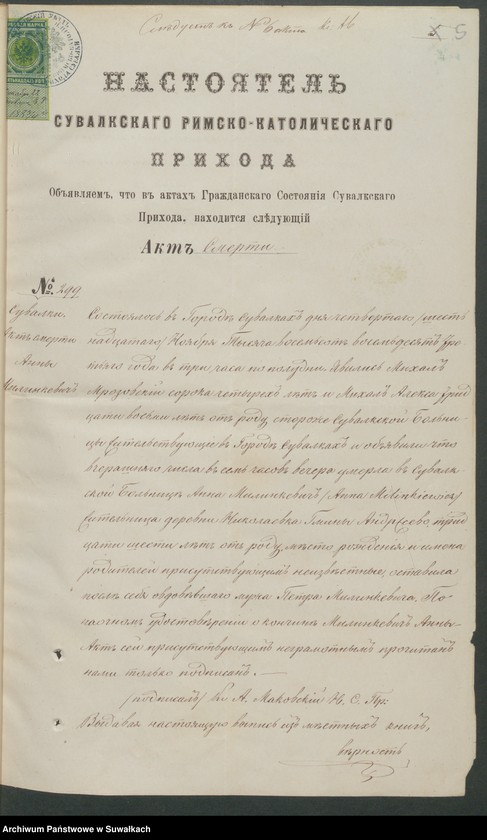 Х 5
НАСТОЯТЕЛЬ
СУВАЛКСКАГО РИМСКО-КАТОЛИЧЕСКАГО
ПРИХОДА
Объявляем, что въ актахъ Гражданскаго Состоянія Сувалкскаго
Прихода, находится слѣдующій
Актъ Смерти
№ 299
Сувалки.
Актъ смерти
Анны
Милинкевичъ
Состоялось въ Городѣ Сувалкахъ дня четвертаго /шест
надцатаго/ Ноября Тысяча восемьсотъ восемьдесятъ тре
тьяго года въ три часа по полудни. Явились Михалъ
Мрозовскій сорока четырехъ лѣтъ и Михалъ Алекса трид
цати восьми лѣтъ отъ роду, сторожи Сувалкской Больни
цы жительствующіе въ Городѣ Сувалкахъ и объявили что
вчерашняго числа въ семь часовъ вечера умерла въ Сувалк
ской Больницѣ Анна Милинкевичъ /Anna Milinkiewicz/
жительница деревни Николаевка Гмины Андрѣево, трид
цати шести лѣтъ отъ роду, мѣсто рожденія и имена
родителей присутствующимъ неизвѣстны, оставила
послѣ себя овдовѣвшаго мужа Петра Милинкевича. По
насочномъ удостовѣреніи о кончинѣ Милинкевичъ Анны.
Актъ сей присутствующимъ неграмотнымъ прочитанъ
нами только подписанъ. —
/подписалъ/ Кс. А. Маковскій Н. С. Пр:
Выдавая настоящую выпись изъ мѣстныхъ книгъ,
вѣрность
Archiwum Państwowe w Suwałkach